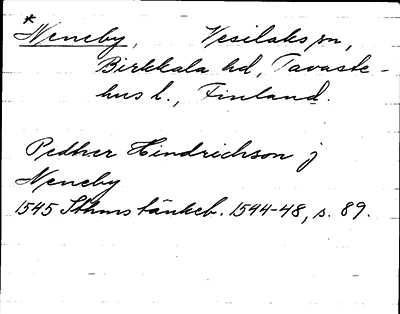 *Neneby, Vesilaks sn,
Birkkala hd, Tavaste-
hus l., Finland.
Pedher Hindrichson j
Neneby
1545 Sthms tänkeb. 1544-48, s. 89.